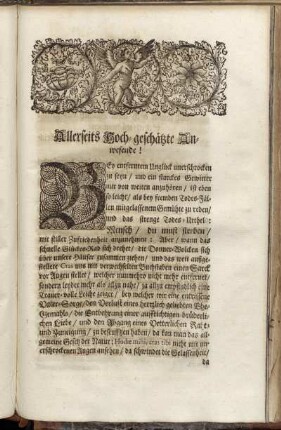 Allerseits Hoch-geschätzte An-
wesende!
BEy entferntem Unglück unerschrocken
zu seyn / und ein starckes Gewitter
nur von weiten anzuhören / ist eben
so leicht / als bey fremden Todes-Fäl-
len mit gelassenem Gemühte zu reden /
und das strenge Todes-Urthel:
Mensch / du must sterben /
mit stiller Zufriedenheit anzunehmen: Aber / wann das
schnelle Unglücks-Rad sich drehet / die Donner-Wolcken sich
über unsere Häuser zusammen ziehen / und das weit ausge-
stellte uns mit verwechselten Buchstaben einen Sarck
vor Augen stellet / welcher nunmehro nicht mehr entfernet /
sondern leyder mehr als allzu nahe / ja allzu empfindlich eine
Trauer-volle Leiche zeiget / bey welcher wir eine entrissene
Vater-Sorge / den Verlust eines hertzlich geliebten Ehe-
Gemahls / die Entbehrung einer auffrichtigen brüderli-
chen Liebe / und den Abgang einer Vetterlichen Raht-
und Zuneigung / zu beseufftzen haben / da kan man das all-
gemeine Gesetz der Natur: nicht mit un-
erschrockenen Augen ansehen / da schwindet die Gelassenheit /
da